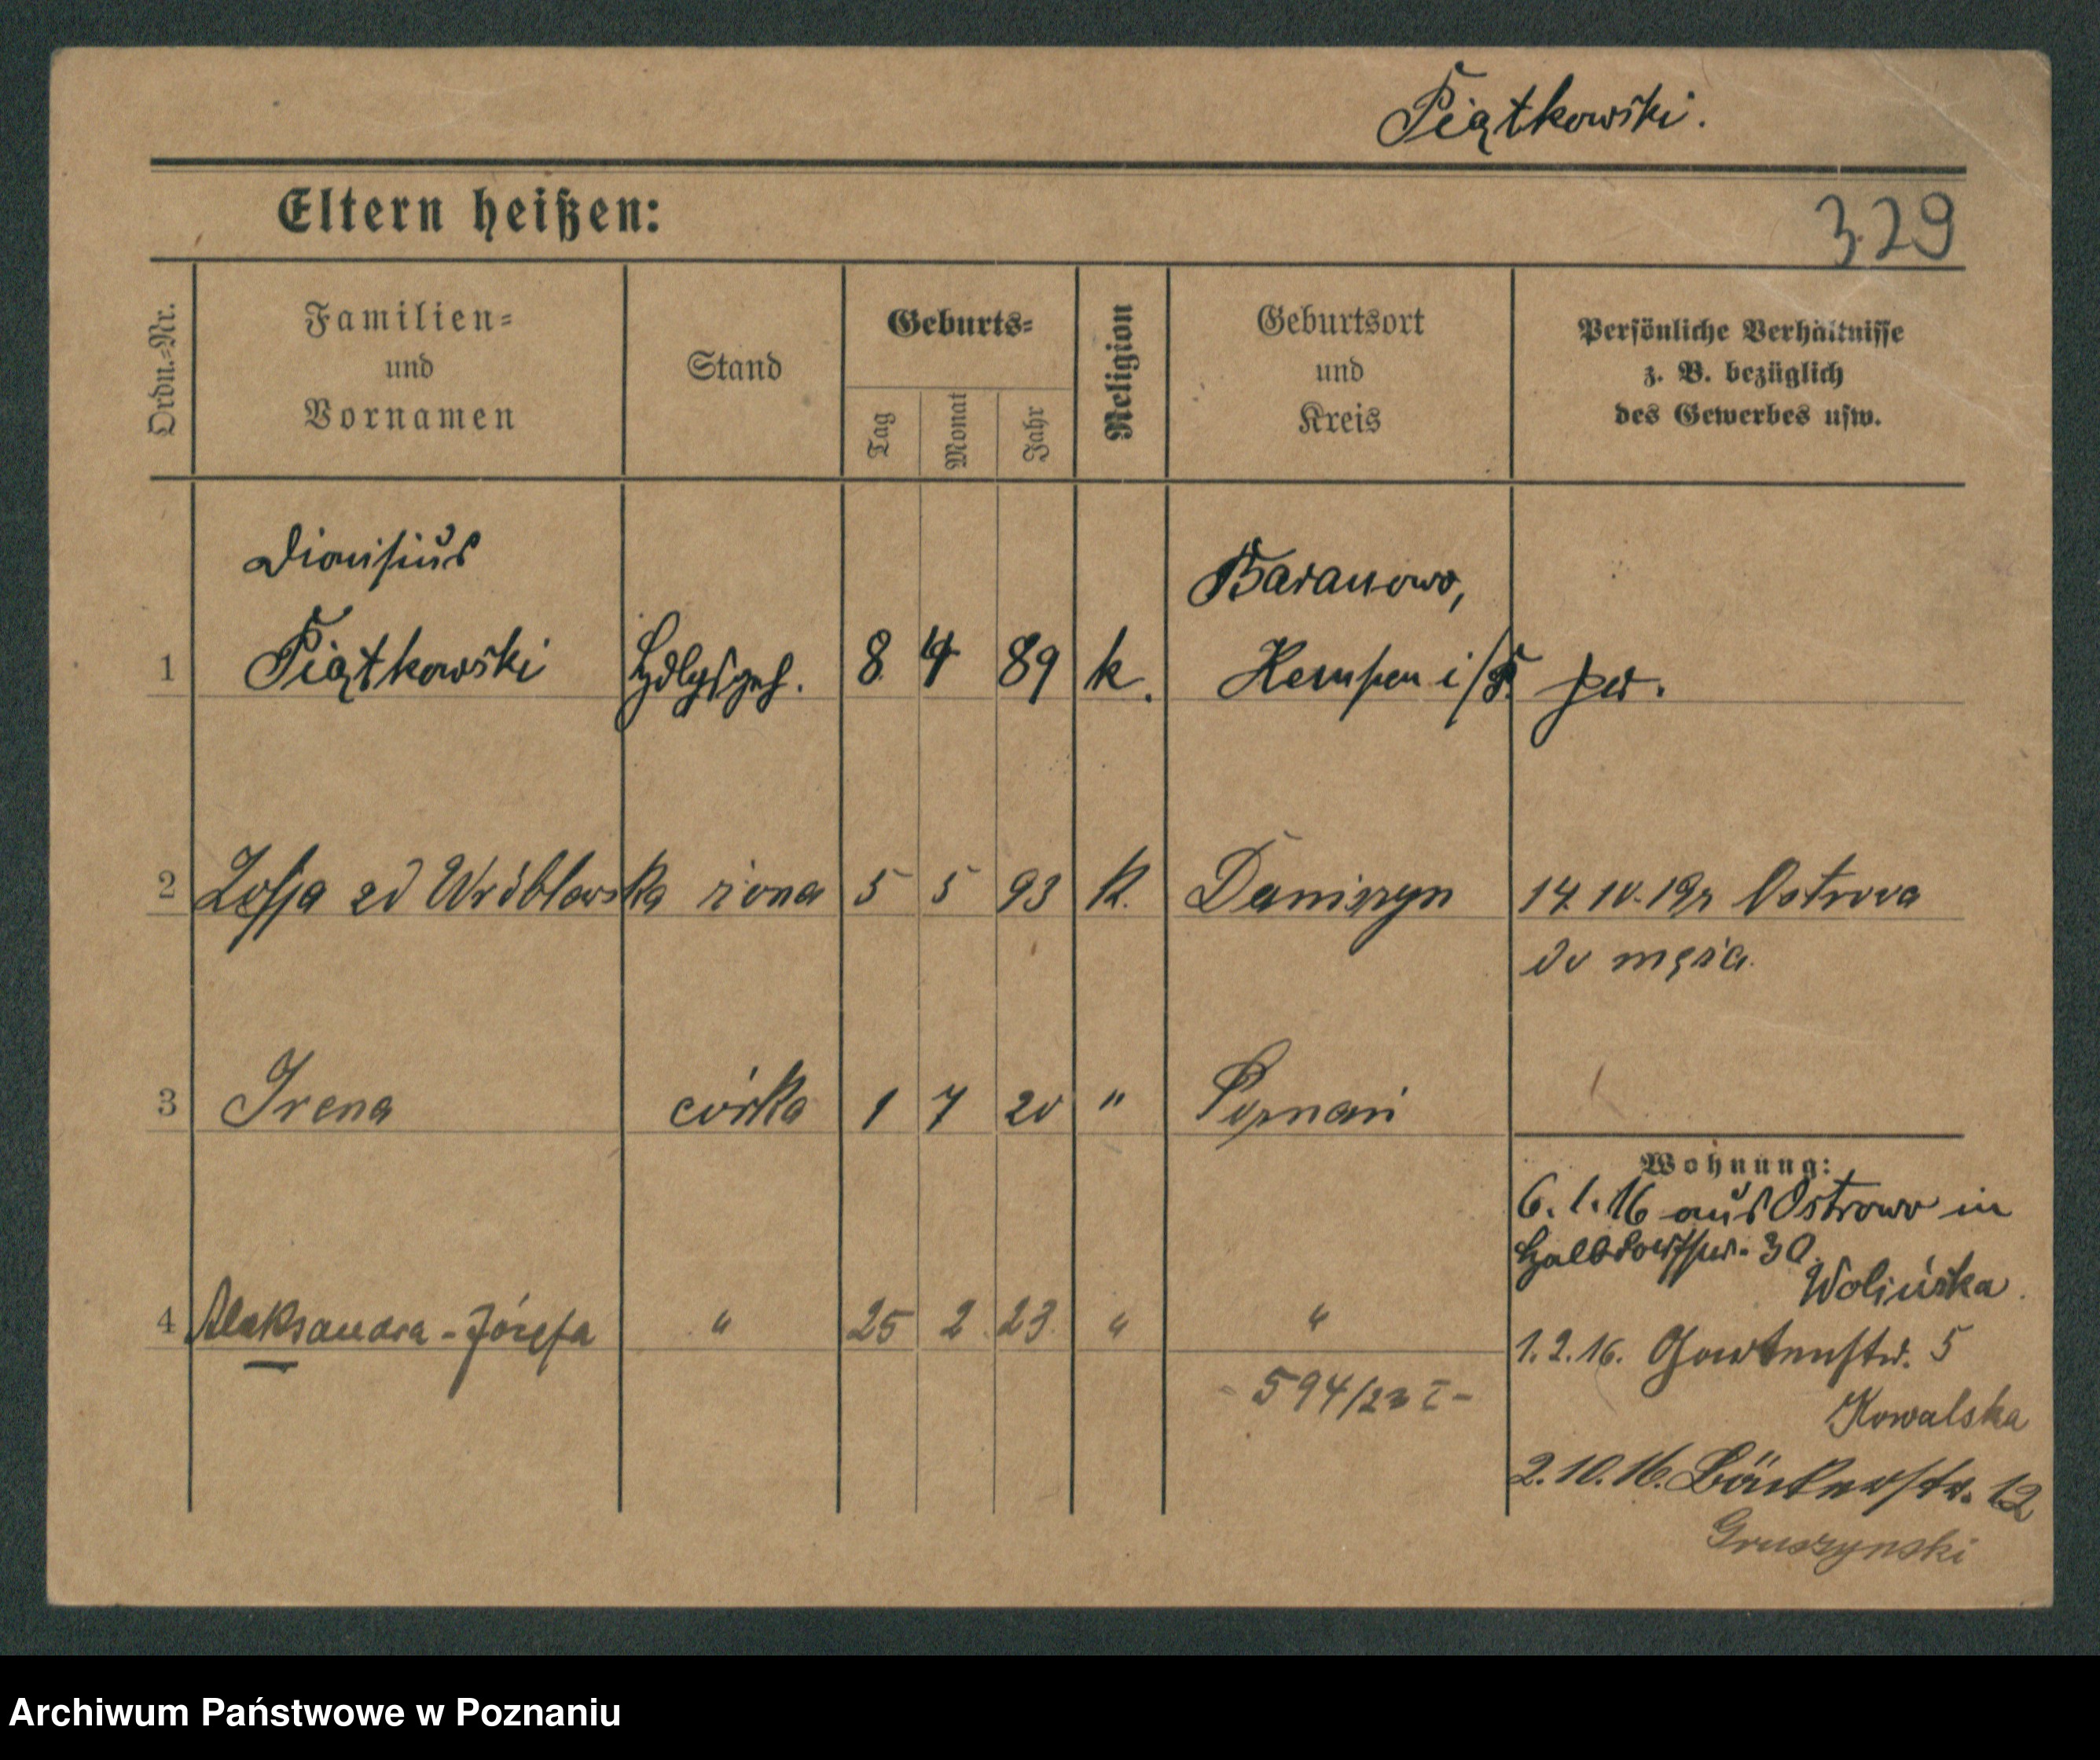 Piątkowski.
Eltern heißen:
329
Ordn.=Nr.
Familien=
und
Vornamen
Stand
Geburts=
Tag
Monat
Jahr
Religion
Geburtsort
und
Kreis
Persönliche Verhältnisse
z. B. bezüglich
des Gewerbes usw.
Dionisius
Baranowo,
1 Piątkowski Hdlgsgeh. 8. 4 89 k. Kempen i/P.
2 Zofja zd Wróblewska żona 5 5 93 K. Daniszyn 14 IV. 19r Ostrowa
do męża.
3 Irena córka 1 7 20 " Poznań
Wohnung:
6. 1. 16 aus Ostrowo in
Halbdorfstr. 30.
Wolińska.
4 Aleksandra-Józefa " 25 2. 23. " "
1. 2. 16. Gartenstr. 5
594/23 I -
Kowalska
2. 10. 16. Bäckerstr. 12
Gruszynski
Archiwum Państwowe w Poznaniu